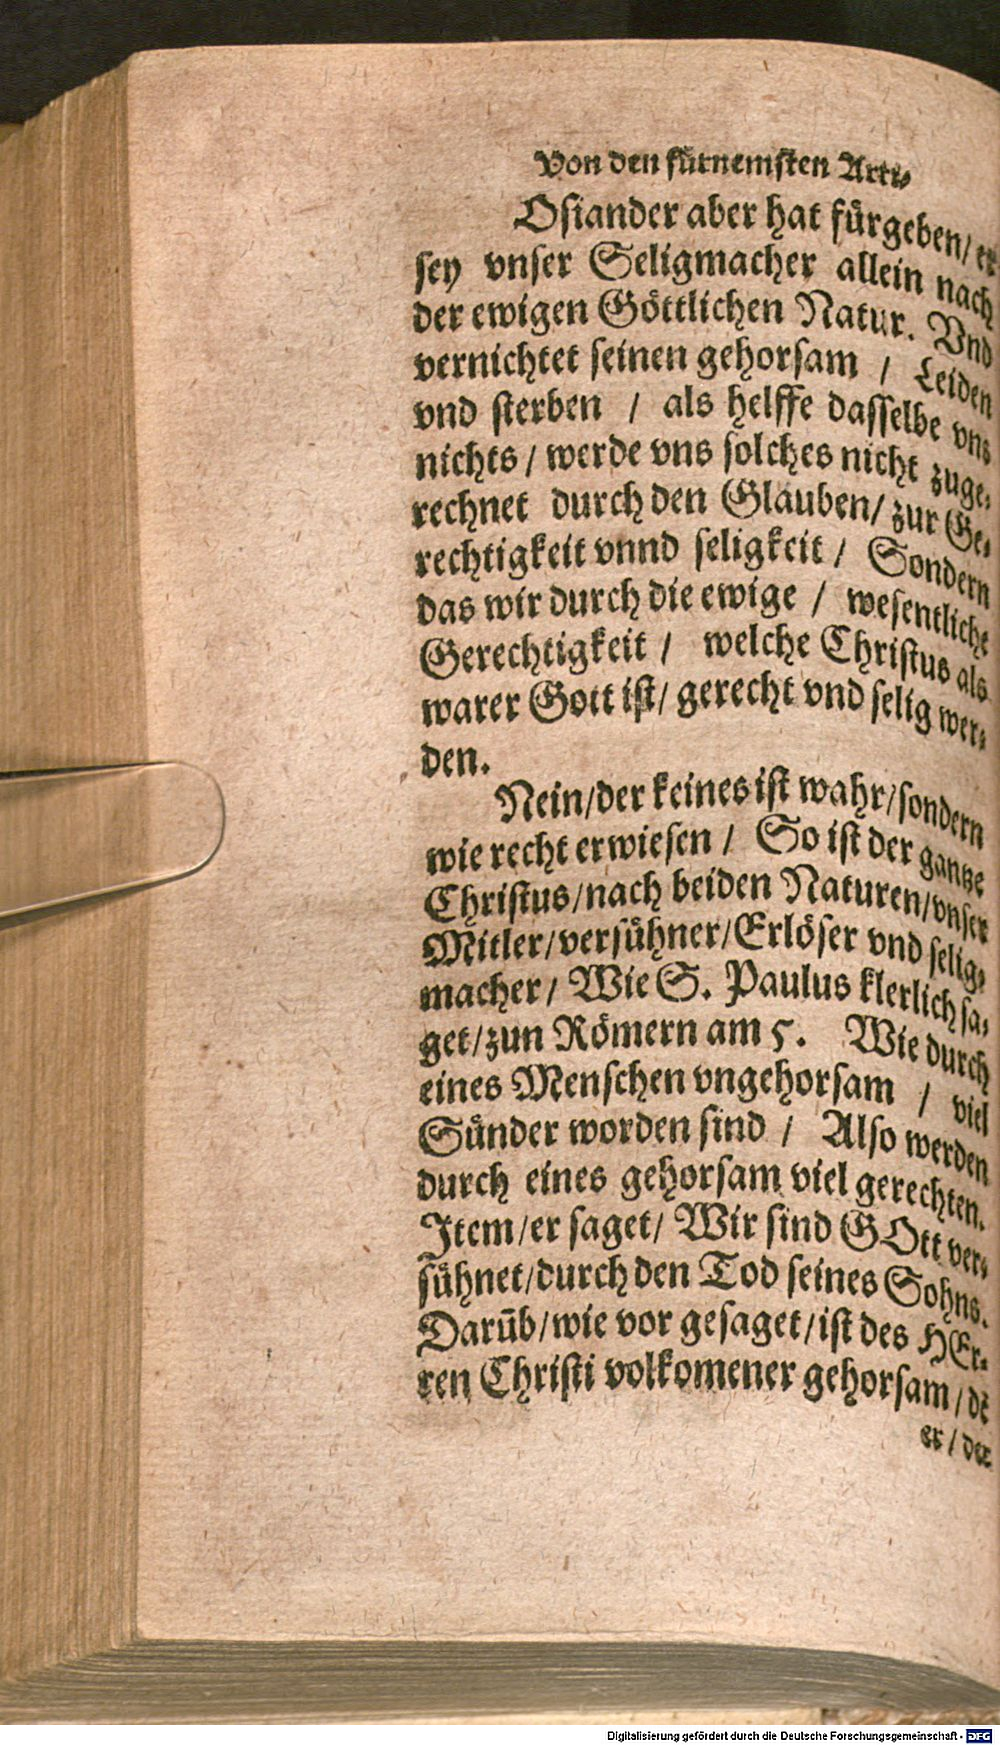 Von den fürnemsten Arti-
Osiander aber hat fürgeben/ er
sey vnser Seligmacher allein nach
der ewigen Göttlichen Natur. Vnd
vernichtet seinen gehorsam / Leiden
vnd sterben / als helffe dasselbe vns
nichts / werde vns solches nicht zuge-
rechnet durch den Glauben/ zur Ge-
rechtigkeit vnnd seligkeit / Sondern
das wir durch die ewige / wesentliche
Gerechtigkeit / welche Christus als
warer Gott ist/ gerecht vnd selig wer-
den.
Nein/der keines ist wahr/sondern
wie recht erwiesen / So ist der gantze
Christus/nach beiden Naturen/vnser
Mitler/versühner/Erlöser vnd selig-
macher/ Wie S. Paulus klerlich sa-
get/zun Römern am 5. Wie durch
eines Menschen vngehorsam / viel
Sünder worden sind / Also werden
durch eines gehorsam viel gerechten.
Item/er saget/ Wir sind GOtt ver-
sühnet/durch den Tod seines Sohns.
Darüb/wie vor gesaget/ist des HEr-
ren Christi volkomener gehorsam/ dē
er/ der
Digitalisierung gefördert durch die Deutsche Forschungsgemeinschaft - DFG